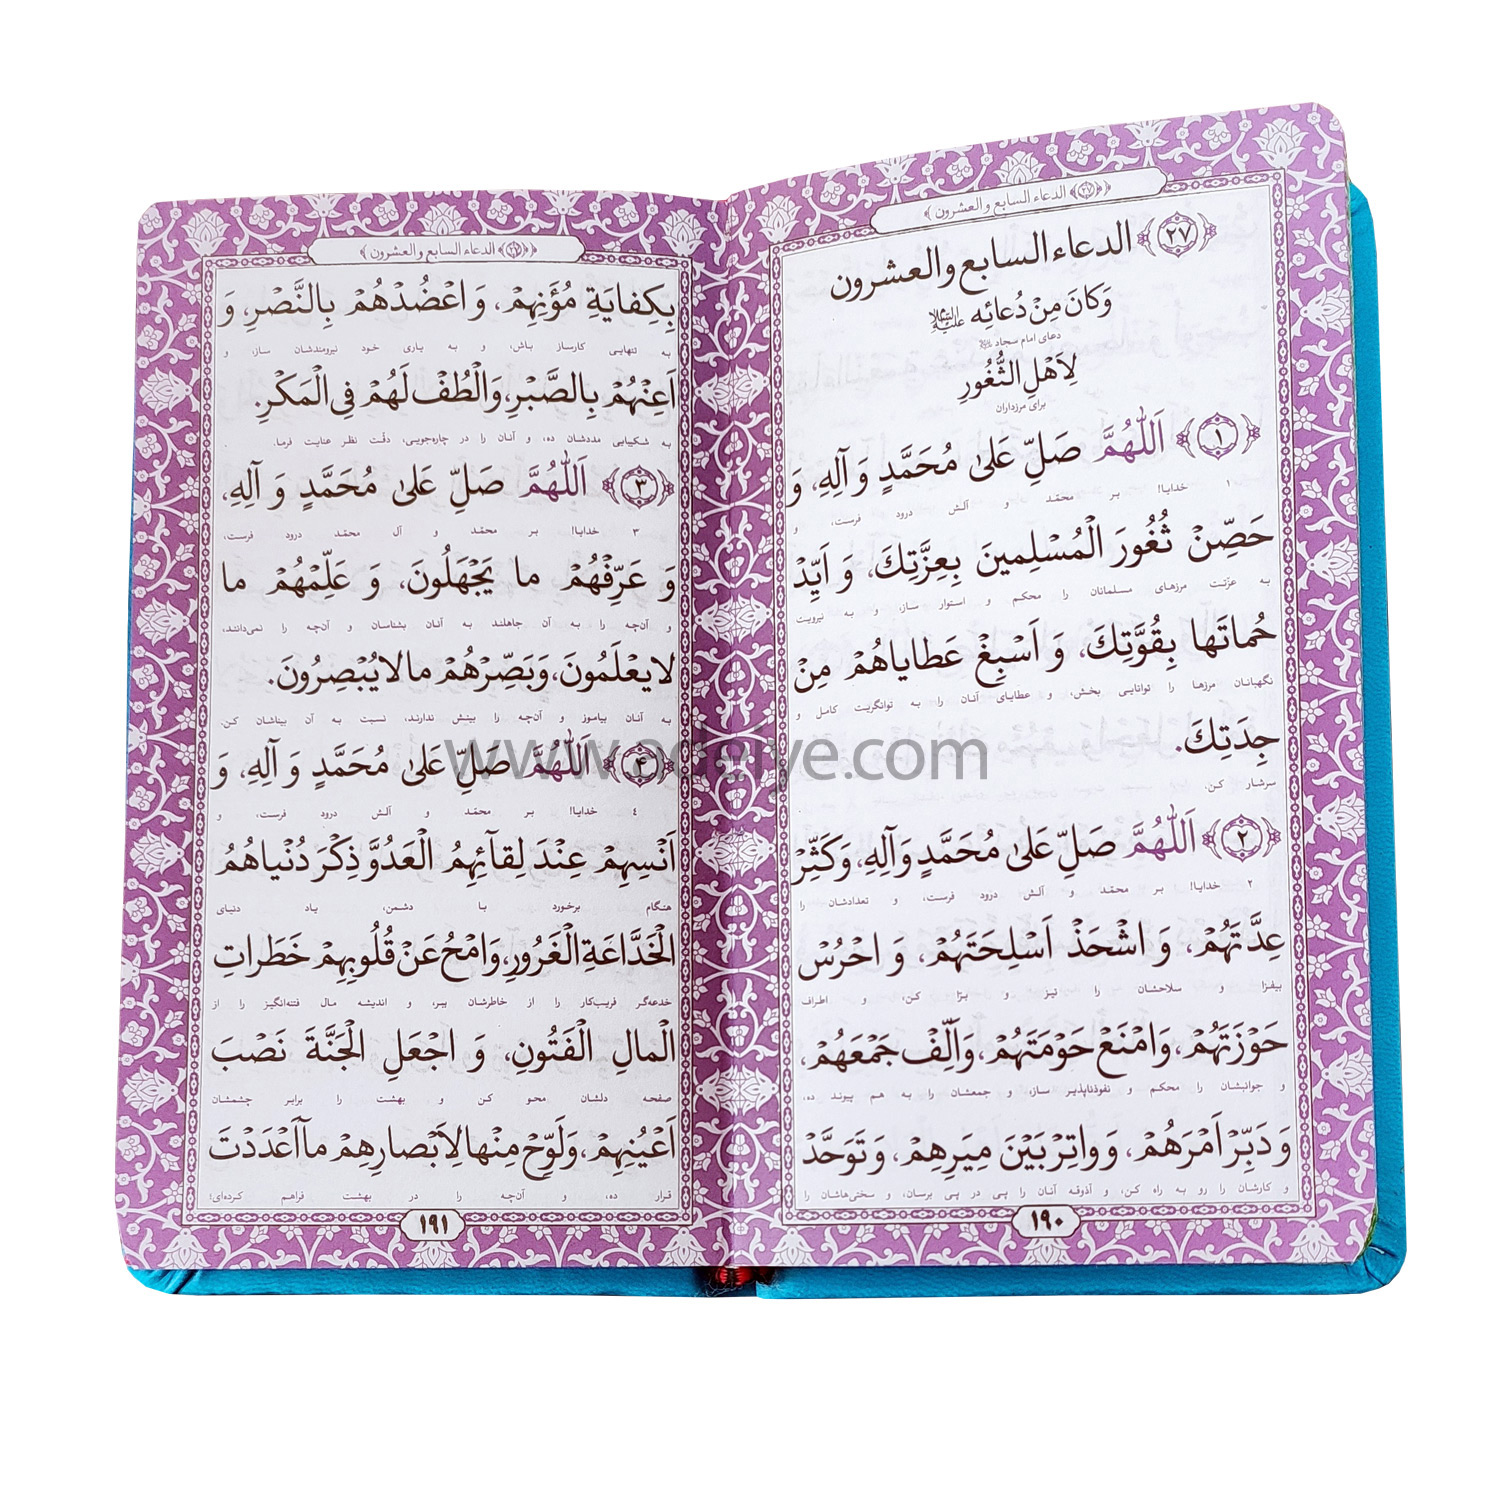 ﴿۲۷﴾ الدعاء السابع والعشرون
﴿۲۷﴾ الدعاء السابع والعشرون
وَكانَ مِنْ دُعائِه عليه‌السّلام
دعای امام سجاد
لِاَهْلِ الثُّغُورِ
برای مرزداران
﴿۱﴾ اَللّٰهُمَّ صَلِّ عَلىٰ مُحَمَّدٍ وَ آلِهِ، وَ
۱ خدایا! بر محمّد و آلش درود فرست، و
حَصِّنْ ثُغُورَ الْمُسْلِمينَ بِعِزَّتِكَ، وَ اَيِّدْ
به عزّتت مرزهای مسلمانان را محکم و استوار ساز، و به نیرویت
حُماتَها بِقُوَّتِكَ، وَ اَسْبِغْ عَطاياهُمْ مِنْ
نگهبانان مرزها را توانایی بخش، و عطایای آنان را به توانگریت کامل و
جِدَتِكَ.
سرشار کن.
﴿۲﴾ اَللّٰهُمَّ صَلِّ عَلىٰ مُحَمَّدٍ وَآلِهِ، وَكَثِّرْ
۲ خدایا! بر محمّد و آلش درود فرست، و تعدادشان را
عِدَّتَهُمْ، وَ اشْحَذْ اَسْلِحَتَهُمْ، وَ احْرُسْ
بیفزا و سلاحشان را تیز و برّا کن، و اطراف
حَوْزَتَهُمْ، وَامْنَعْ حَوْمَتَهُمْ، وَاَلِّفْ جَمْعَهُمْ،
و جوانبشان را محکم و نفوذناپذیر ساز، و جمعشان را به هم پیوند ده،
وَ دَبِّرْ اَمْرَهُمْ، وَ واتِرْ بَيْنَ مِيَرِهِمْ، وَ تَوَحَّدْ
و کارشان را رو به راه کن، و آذوقه آنان را پی در پی برسان، و سختی‌هاشان را
۱۹۰
﴿۲۷﴾ الدعاء السابع والعشرون
بِكِفايَةِ مُؤَنِهِمْ، وَ اعْضُدْهُمْ بِالنَّصْرِ، وَ
به تنهایی کارساز باش، و به یاری خود نیرومندشان ساز، و
اَعِنْهُمْ بِالصَّبْرِ، وَالْطُفْ لَهُمْ فِى الْمَكْرِ.
به شکیبایی مددشان ده، و آنان را در چاره‌جویی، دقّت نظر عنایت فرما.
﴿۳﴾ اَللّٰهُمَّ صَلِّ عَلىٰ مُحَمَّدٍ وَ آلِهِ،
۳ خدایا! بر محمّد و آل محمّد درود فرست،
وَ عَرِّفْهُمْ ما يَجْهَلُونَ، وَ عَلِّمْهُمْ ما
و آن‌چه را به آن جاهلند به آنان بشناسان و آن‌چه را نمی‌دانند،
لا يَعْلَمُونَ، وَ بَصِّرْهُمْ ما لا يُبْصِرُونَ.
به آنان بیاموز و آن‌چه را بینش ندارند، نسبت به آن بیناشان کن.
﴿۴﴾ اَللّٰهُمَّ صَلِّ عَلىٰ مُحَمَّدٍ وَ آلِهِ، وَ
٤ خدایا! بر محمّد و آلش درود فرست، و
اَنْسِهِمْ عِنْدَ لِقآئِهِمُ الْعَدُوَّ ذِكْرَ دُنْياهُمُ
هنگام برخورد با دشمن، یاد دنیای
الْخَدّاعَةِ الْغَرُورِ، وَامْحُ عَنْ قُلُوبِهِمْ خَطَراتِ
خدعه‌گر فریب‌کار را از خاطرشان ببر، و اندیشه مال فتنه‌انگیز را از
الْمالِ الْفَتُونِ، وَ اجْعَلِ الْجَنَّةَ نَصْبَ
صفحه دلشان محو کن و بهشت را برابر چشمشان
اَعْيُنِهِمْ، وَ لَوِّحْ مِنْها لِاَبْصارِهِمْ ما اَعْدَدْتَ
قرار ده، و آن‌چه را در بهشت فراهم کرده‌ای؛
۱۹۱
www.adeiye.com